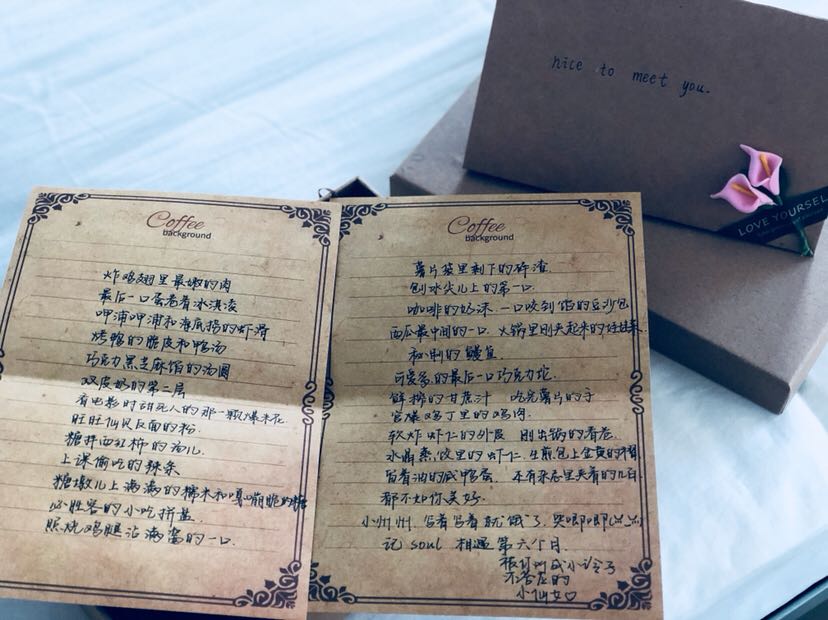 nice to meet you.
LOVE YOURSEL
Coffee
background
炸鸡翅里最嫩的肉
最后一口蛋卷着冰淇淋
呷浦呷浦和海底捞的虾滑
烤鸭的脆皮和鸭汤
巧克力黑芝麻馅的汤圆
双皮奶的第二层
看电影时甜死人的那一颗爆米花
旺旺仙贝反面的粉
糖拌西红柿的汤儿
上课偷吃的辣条
糖墩儿上满满的糯米和嘎嘣脆的糖
必胜客的小吃拼盘
照烧鸡腿沾满酱的一口
Coffee
background
薯片袋里剩下的碎渣
刨冰尖儿上的第一口
咖啡的奶沫 一口咬到馅的豆沙包
西瓜最中间的一口 火锅里刚夹起来的
秘制的鳗鱼
可爱多的最后一口巧克力坨
鲜榨的甘蔗汁 吃完薯片的手
宫爆鸡丁里的鸡肉
软炸虾仁的外层 刚出锅的春卷
水晶蒸饺里的虾仁 生煎包上金黄的
冒着油的咸鸭蛋 还有
都不如你美好
小州州 写着写着就饿了 哭唧唧
记 soul 相遇第六个月
小仙女♡